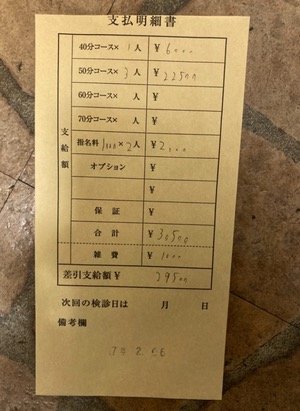 支払明細書
40分コース× 1人 ¥ 6000
50分コース× 3人 ¥ 22500
60分コース× 人 ¥
70分コース× 人 ¥
支給額
指名料 1000×2人 ¥ 2000
オプション ¥
¥
保証 ¥
合計 ¥ 30500
雑費 ¥ 1000
差引支給額¥ 29500
次回の検診日は 月 日
備考欄